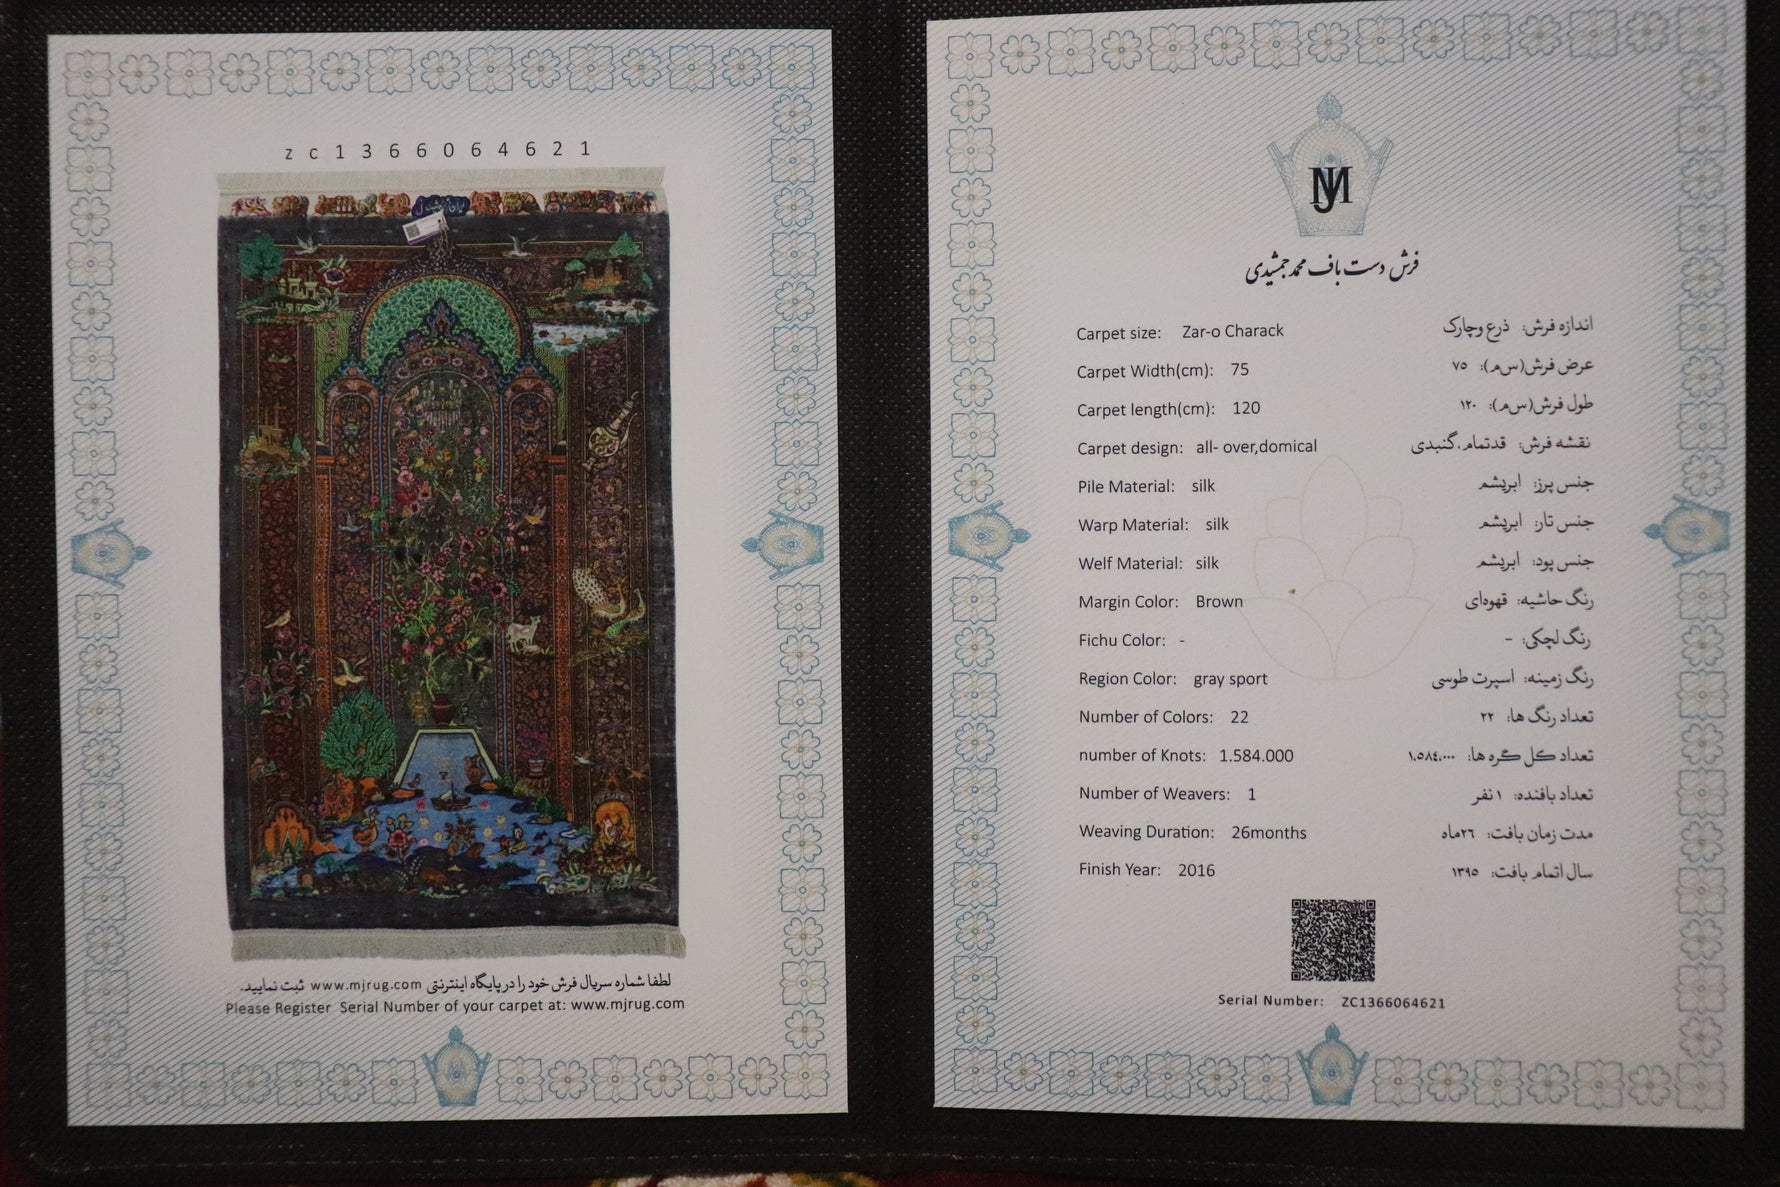 zc1366064621
لطفا شماره سریال فرش خود را در پایگاه اینترنتی www.mjrug.com ثبت نمایید.
Please Register Serial Number of your carpet at: www.mjrug.com
MJ
فرش دست باف محمد جمشیدی
Carpet size: Zar-o Charack اندازه فرش: ذرع وچارک
Carpet Width(cm): 75 عرض فرش(س‌م): ۷۵
Carpet length(cm): 120 طول فرش(س‌م): ۱۲۰
Carpet design: all- over,domical نقشه فرش: قدتمام،گنبدی
Pile Material: silk جنس پرز: ابریشم
Warp Material: silk جنس تار: ابریشم
Welf Material: silk جنس پود: ابریشم
Margin Color: Brown رنگ حاشیه: قهوه‌ای
Fichu Color: - رنگ لچکی: -
Region Color: gray sport رنگ زمینه: اسپرت طوسی
Number of Colors: 22 تعداد رنگ ها: ۲۲
number of Knots: 1.584.000 تعداد کل گره ها: ۱،۵۸٤،۰۰۰
Number of Weavers: 1 تعداد بافنده: ۱ نفر
Weaving Duration: 26months مدت زمان بافت: ۲٦ماه
Finish Year: 2016 سال اتمام بافت: ۱۳۹۵
Serial Number: ZC1366064621